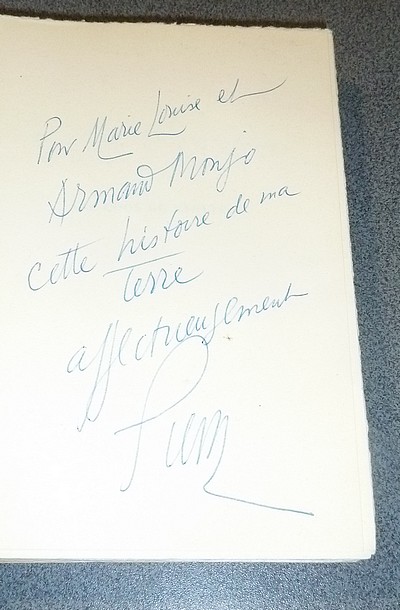 Pour Marie Louise et
Armand Monjo
cette histoire de ma
terre
affectueusement